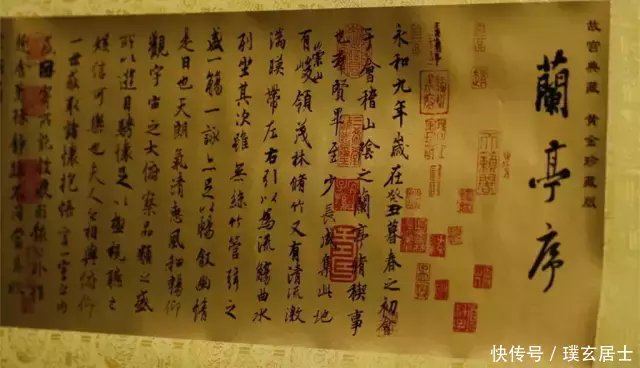 故宫典藏 黄金珍藏版
蘭亭序
永和九年歲在癸丑暮春之初會
于會稽山陰之蘭亭脩稧事
也羣賢畢至少長咸集此地
有崇山峻領茂林脩竹又有清流激
湍暎帶左右引以為流觴曲水
列坐其次雖無絲竹管弦之
盛一觴一詠亦足以暢敘幽情
是日也天朗氣清惠風和暢仰
觀宇宙之大俯察品類之盛
所以遊目騁懷足以極視聽之
娛信可樂也夫人之相與俯仰
一世或取諸懷抱悟言一室之內
或因寄所託放浪形骸之外雖
趣舍萬殊靜躁不同當其欣
快传号 / 璞玄居士